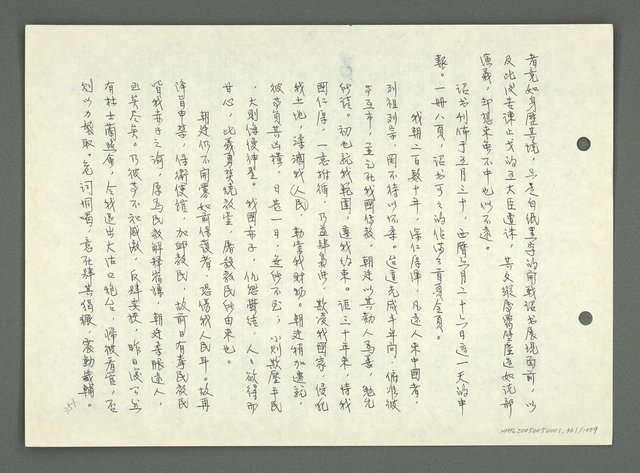 者竟如身歷其境，只是白紙黑字的宣戰詔書展現面前，以
及此後苦諫止戈的五大臣遭誅，其文縱屬
演義，却想來為不中也不遠。
詔書刊佈于五月三十，西曆六月二十六日這一天的中
報。一冊八頁，詔書可可的佔滿了首頁全頁。
我朝二百數十年，深仁厚澤，凡遠人來中國者，
列祖列宗，罔不待以懷柔。迨道光咸丰年間，俯准彼
等互市，並乞在我國傳教，朝廷以其勸人為善，勉允
所請。初也就我範圍，遵我約束。詎三十年來，恃我
國仁厚，一意拊循，乃益肆梟張，欺凌我國家，侵犯
我土地，蹂躪我人民，勒索我財物。朝廷稍加遷就，
彼等負其凶橫，日甚一日，無所不至；小則欺壓平民
，大則侮慢神聖。我國赤子，仇怨鬱結，人人欲得而
甘心，此義勇焚燒教堂，屠殺教民所由來也。
朝廷仍不開釁如前保護者，恐傷我人民耳。故再
降旨申禁，保衛使館，加卹教民，故前日有拳民教民
皆我赤子之諭，原為民教解釋宿嫌，朝廷柔服遠人，
至矣盡矣。乃彼等不知感激，反肆要挾，昨日復公然
有杜士蘭照會，令我退出大沽口炮台，歸彼看管，否
則以力襲取。危詞恫喝，意在肆其猖獗，震動畿輔。
361.
NMTL20050050001:361/1059